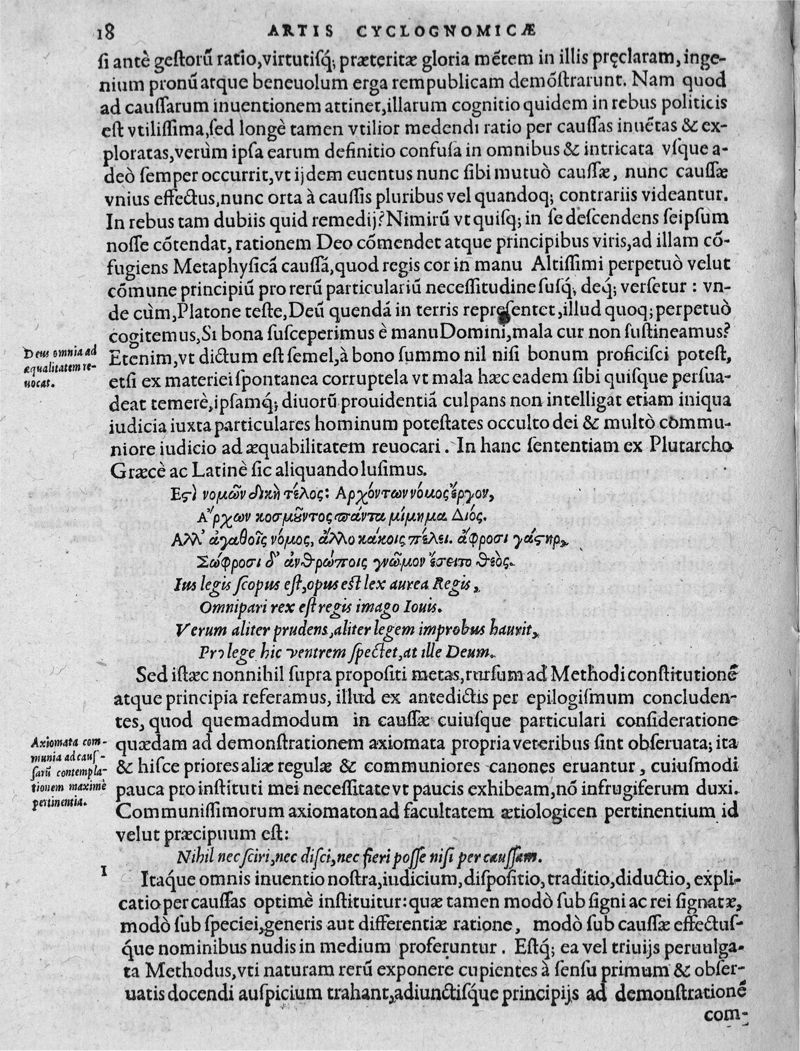 18 ARTIS CYCLOGNOMICÆ
ſi antè geſtorũ ratio,virtutiſq́; præteritæ gloria mẽtem in illis pręclaram,inge-
nium pronũ atque beneuolum erga rempublicam demõſtrarunt. Nam quod
ad cauſſarum inuentionem attinet,illarum cognitio quidem in rebus politicis
eſt vtiliſſima,ſed longè tamen vtilior medendi ratio per cauſſas inuẽtas & ex-
ploratas,verùm ipſa earum definitio confuſa in omnibus & intricata vſque a-
deò ſemper occurrit,vt ijdem euentus nunc ſibi mutuò cauſſæ, nunc cauſſæ
vnius effectus,nunc orta à cauſſis pluribus vel quandoq; contrariis videantur.
In rebus tam dubiis quid remedij? Nimirũ vt quiſq; in ſe deſcendens ſeipſum
noſſe cõtendat, rationem Deo cõmendet atque principibus viris,ad illam cõ-
fugiens Metaphyſicã cauſſã,quod regis cor in manu Altiſſimi perpetuò velut
cõmune principiũ pro rerũ particulariũ neceſſitudine ſuſq́, deq́; verſetur : vn-
de cùm,Platone teſte,Deũ quendã in terris repręſentet,illud quoq; perpetuò
cogitemus,Si bona ſuſceperimus è manu Domini,mala cur non ſuſtineamus?
Deus omnia ad
æqualitatem re-
uocat.
Etenim,vt dictum eſt ſemel,à bono ſummo nil niſi bonum proficiſci poteſt,
etſi ex materiei ſpontanea corruptela vt mala hæc eadem ſibi quiſque perſua-
deat temerè,ipſamq́; diuorũ prouidentiã culpans non intelligat etiam iniqua
iudicia iuxta particulares hominum poteſtates occulto dei & multò commu-
niore iudicio ad æquabilitatem reuocari. In hanc ſententiam ex Plutarcho
Græcè ac Latinè ſic aliquando luſimus.
Εςὶ νομῶν δικὴ τέλος: Αρχόντων νόμος ἔργον,
Αʹρχων κοσμοῦντος πάντα μίμημα Διός.
Αλλ' ἀγαθοῖς νόμος, ἄλλο κακοις πέλει. ἄφροσι γάςηρ,
Σώφροσι δ' ἀνθρώποις γνῶμον ἕσειτο θεὸς.
Ius legis ſcopus eſt,opus eſt lex aurea Regis,
Omnipari rex eſt regis imago Iouis.
Verum aliter prudens,aliter legem improbus haurit,
Pro lege hic ventrem ſpectet,at ille Deum.
Sed iſtæc nonnihil ſupra propoſiti metas,rurſum ad Methodi conſtitutionẽ
atque principia referamus, illud ex antedictis per epilogiſmum concluden-
tes, quod quemadmodum in cauſſæ cuiuſque particulari conſideratione
Axiomata com-
munia ad cauſ-
ſarũ contempla-
tionem maximè
pertinentia.
quædam ad demonſtrationem axiomata propria veteribus ſint obſeruata; ita
& hiſce priores aliæ regulæ & communiores canones eruantur, cuiuſmodi
pauca pro inſtituti mei neceſſitate vt paucis exhibeam,nõ infrugiferum duxi.
Communiſſimorum axiomaton ad facultatem ætiologicen pertinentium id
velut præcipuum eſt:
Nihil nec ſciri,nec diſci,nec fieri poſſe niſi per cauſſam.
1
Itaque omnis inuentio noſtra,iudicium,diſpoſitio,traditio,diductio, expli-
catio per cauſſas optimè inſtituitur: quæ tamen modò ſub ſigni ac rei ſignatæ,
modò ſub ſpeciei,generis aut differentiæ ratione, modò ſub cauſſæ effectuſ-
q́ue nominibus nudis in medium proferuntur. Eſtq́; ea vel triuijs peruulga-
ta Methodus,vti naturam rerũ exponere cupientes à ſenſu primum & obſer-
uatis docendi auſpicium trahant,adiunctiſque principijs ad demonſtrationẽ
com-